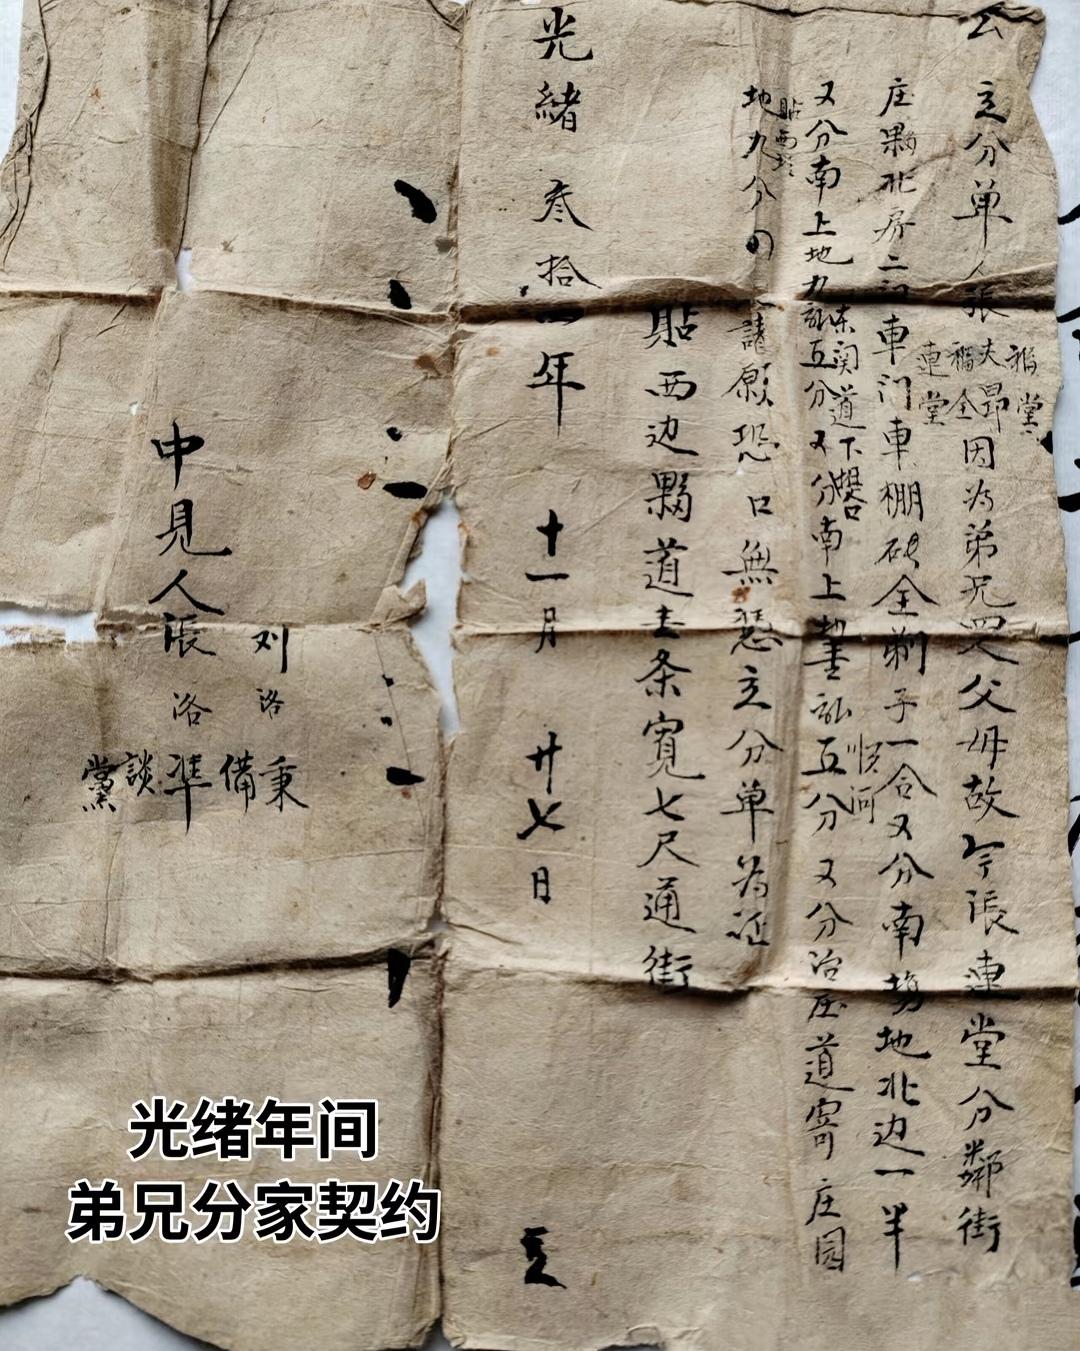 公立分单人張
福堂
夫昂
福全
連堂
因为弟兄四人父母故今張連堂分鄰街
庄夥北房二间車门車棚砖全剃子一合又分南塲地北边一半
又分南上地九畝五分又分南上地畝五分又分冶庄道寄庄园
东阎道下
地九分
貼西
請愿恐口無慿立分单为证
貼西边夥道壹条寬七尺通街
光緒叁拾一年 十一月 廿七日 立
中見人
刘洛秉
備
張洛準
談
黨
光绪年间
弟兄分家契约